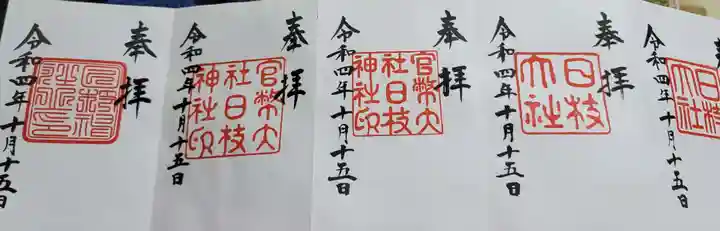 日枝
大社
令和四年十月十五日
奉拝
日枝
大社
令和四年十月十五日
奉拝
官幣大
社日枝
神社印
令和四年十月十五日
奉拝
官幣大
社日枝
神社印
令和四年十月十五日
奉拝
令和四年十月十五日